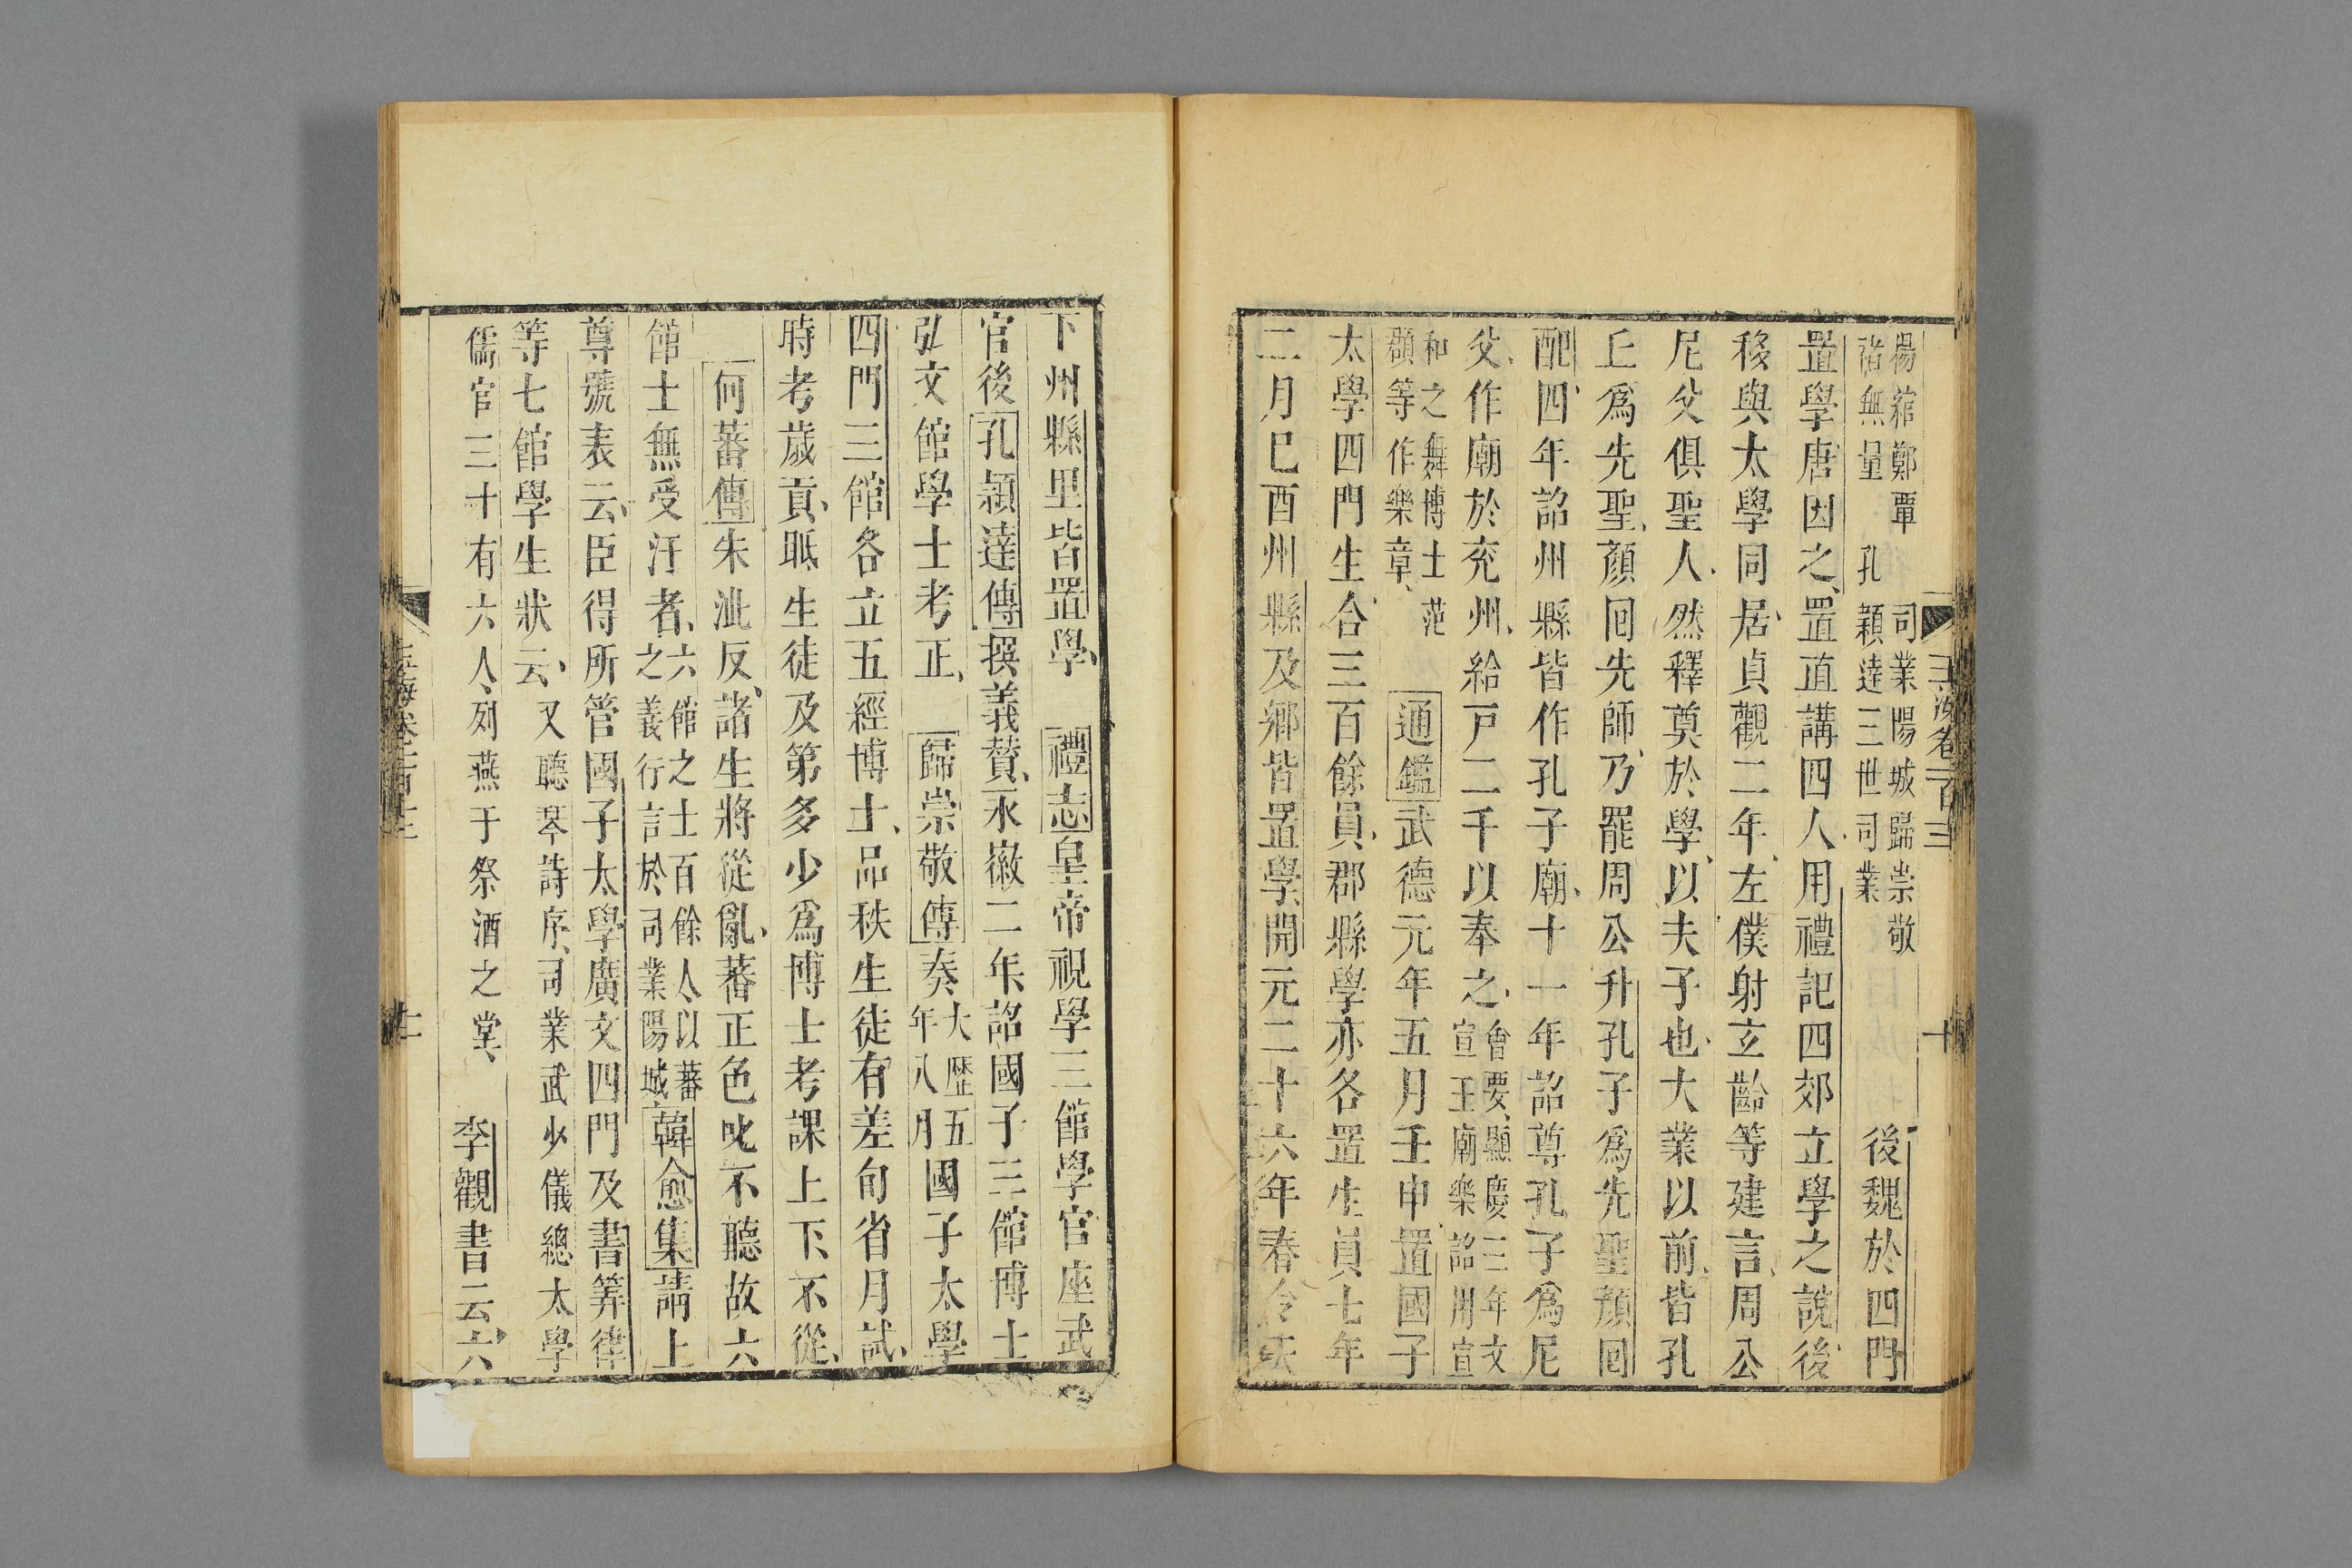 楊綰鄭覃 司業陽城歸崇敬
褚無量 孔穎達三世司業
後魏於四門
置學唐因之、置直講四人、用禮記四郊立學之說後
移與太學同居、貞觀二年、左僕射玄齡等建言、周公
尼父俱聖人、然釋奠於學、以夫子也、大業以前、皆孔
丘爲先聖、顏回先師、乃罷周公升孔子爲先聖顏回
配、四年詔州縣皆作孔子廟、十一年詔尊孔子爲尼
父、作廟於兖州、給戸二千以奉之、
會要、顯慶三年文
宣王廟樂詔用宣
和之舞博士范
頵等作樂章、
通鑑武德元年五月壬申、置國子
太學四門生、合三百餘員、郡縣學亦各置生員七年
二月己酉州縣及鄉皆置學、開元二十六年春令天
玉海卷一百十三
十
下州縣里皆置學、 禮志皇帝視學三館學官座武
官後孔穎達傳撰義贊、永徽二年詔國子三館博士
弘文館學士考正、 歸崇敬傳奏
大歷五
年八月
國子太學
四門三館各立五經博士、品秩生徒有差旬省月試、
時考歲貢、眂生徒及第多少爲博士考課上下、不從、
何蕃傳朱泚反、諸生將從亂、蕃正色叱不聽故六
館士無受汙者、
六館之士百餘人、以蕃
之義行言於司業陽城
韓愈集請上
尊號表云、臣得所管國子太學廣文四門及書筭律
等七館學生狀云、又聽琴詩序、司業武少儀總太學
儒官三十有六人、列燕于祭酒之堂、 李觀書云、六
玉海卷一百十三
十一